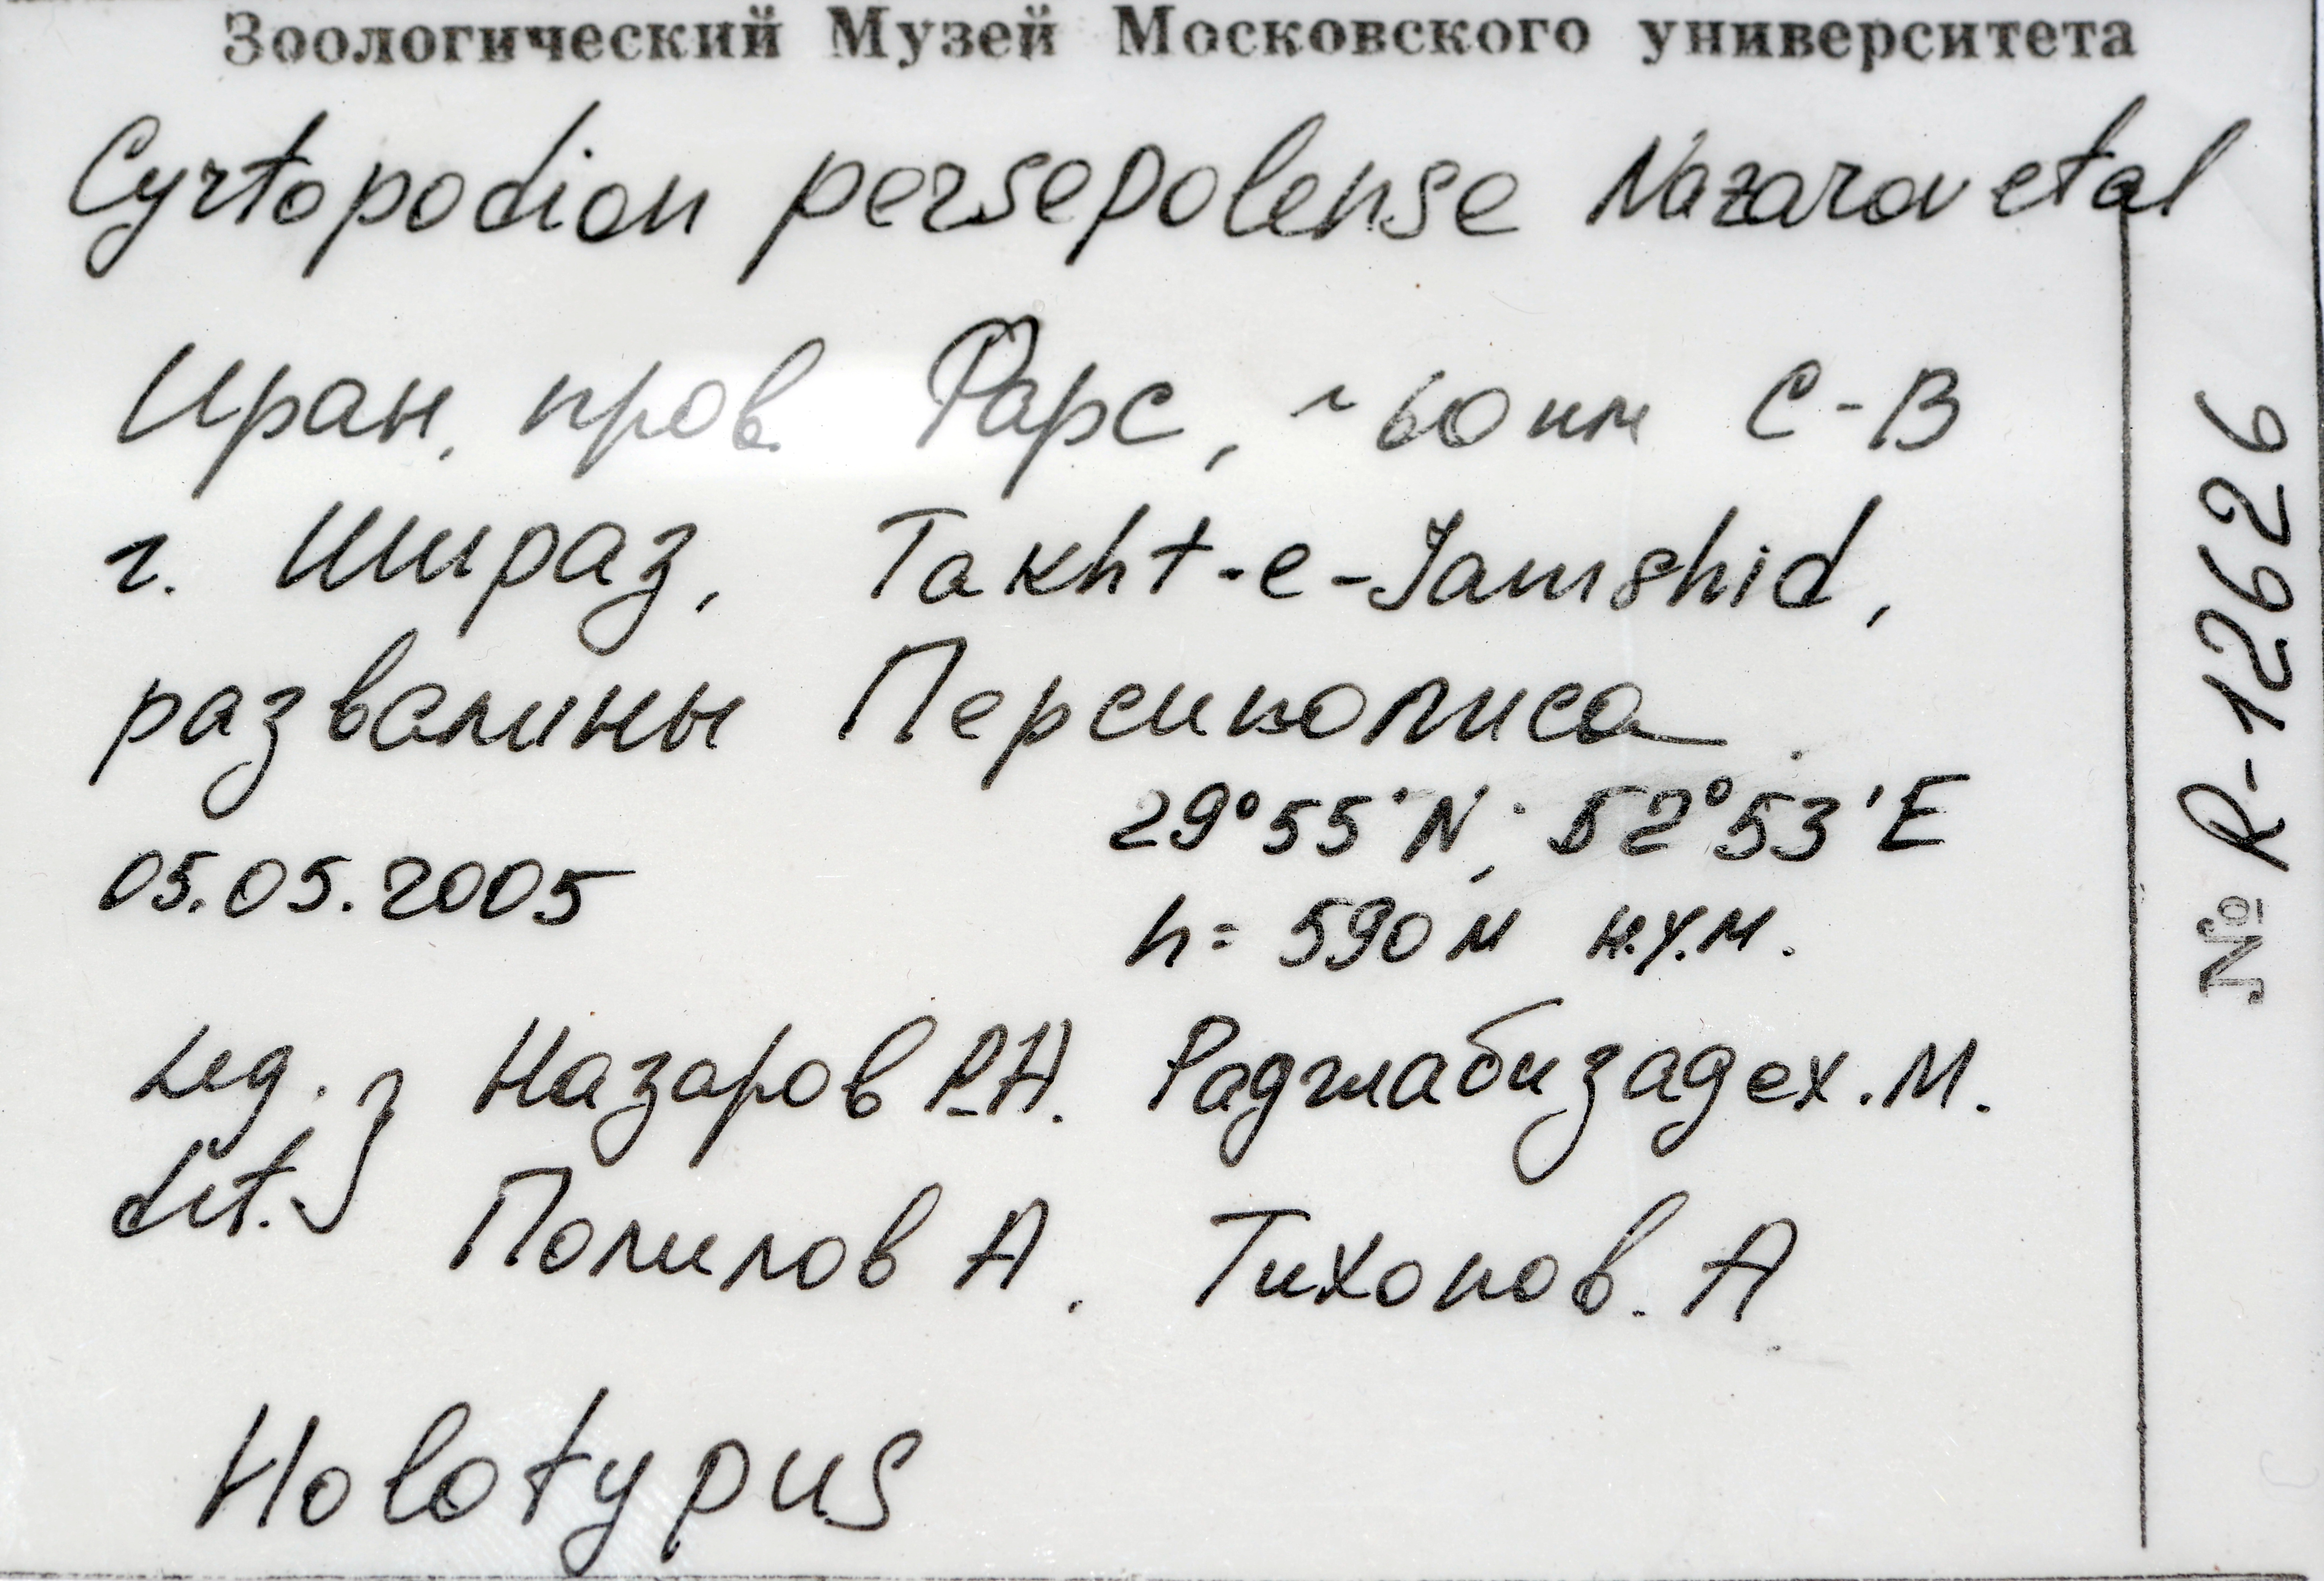 Зоологический Музей Московского университета
Cyrtopodion persepolense Nazarov et al
Иран, пров Фарс, ~60 км С-В
г. Шираз, Takht-e-Jamshid,
развалины Персиполиса.
29°55'N; 52°53'E
05.05.2005
h= 590 м н.у.м.
Leg. Назаров Р.А. Раджабизадех.М.
det. Полилов А. Тихонов. А
Holotypus
№ R-12626